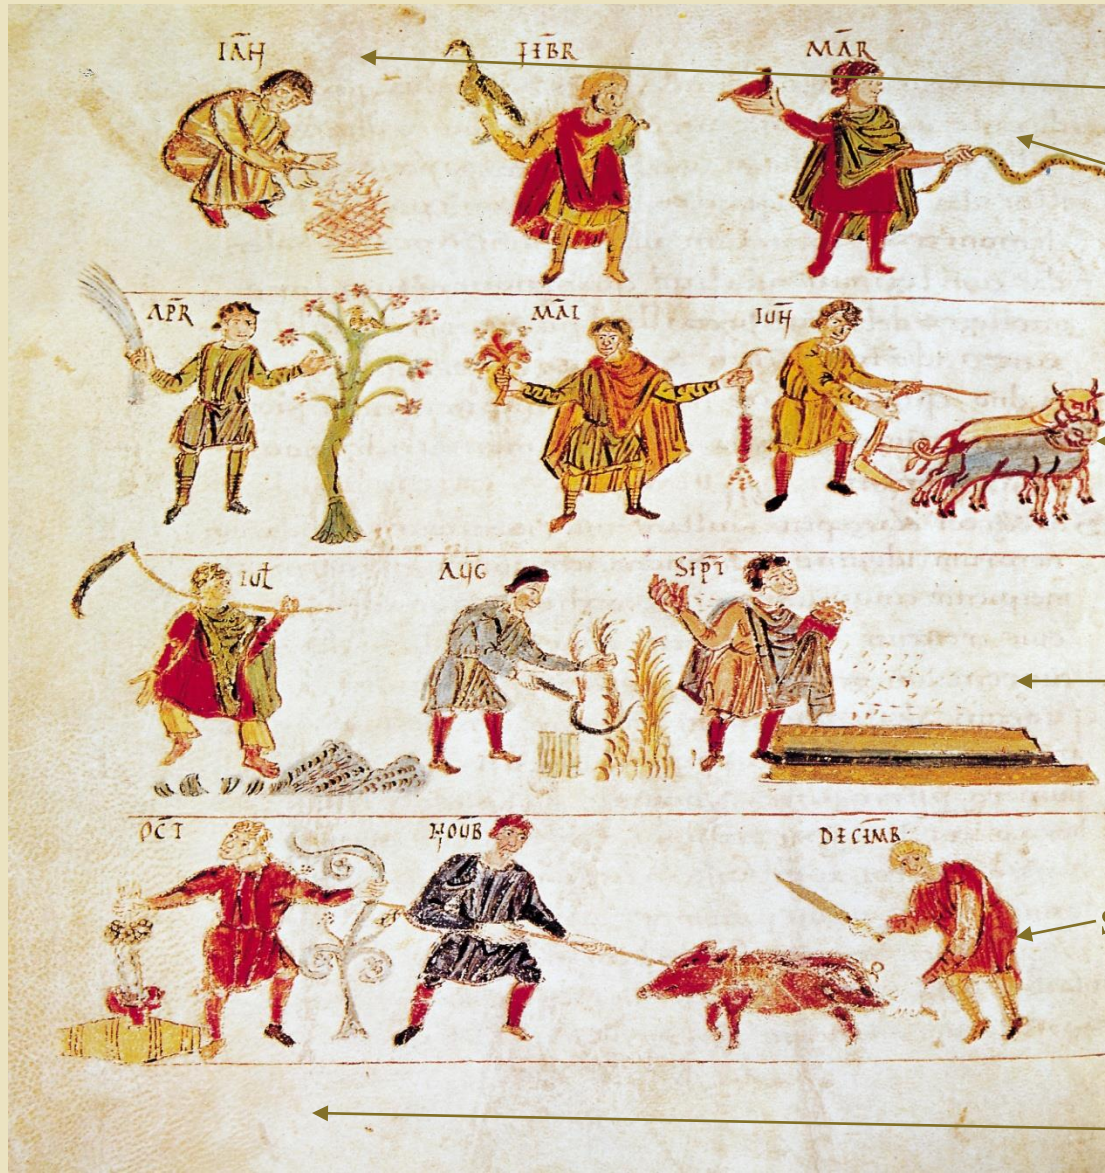 IAN FEBR MAR
APR MAI IUN
IUL AUG SEPT
OCT NOUB DECEMB
S